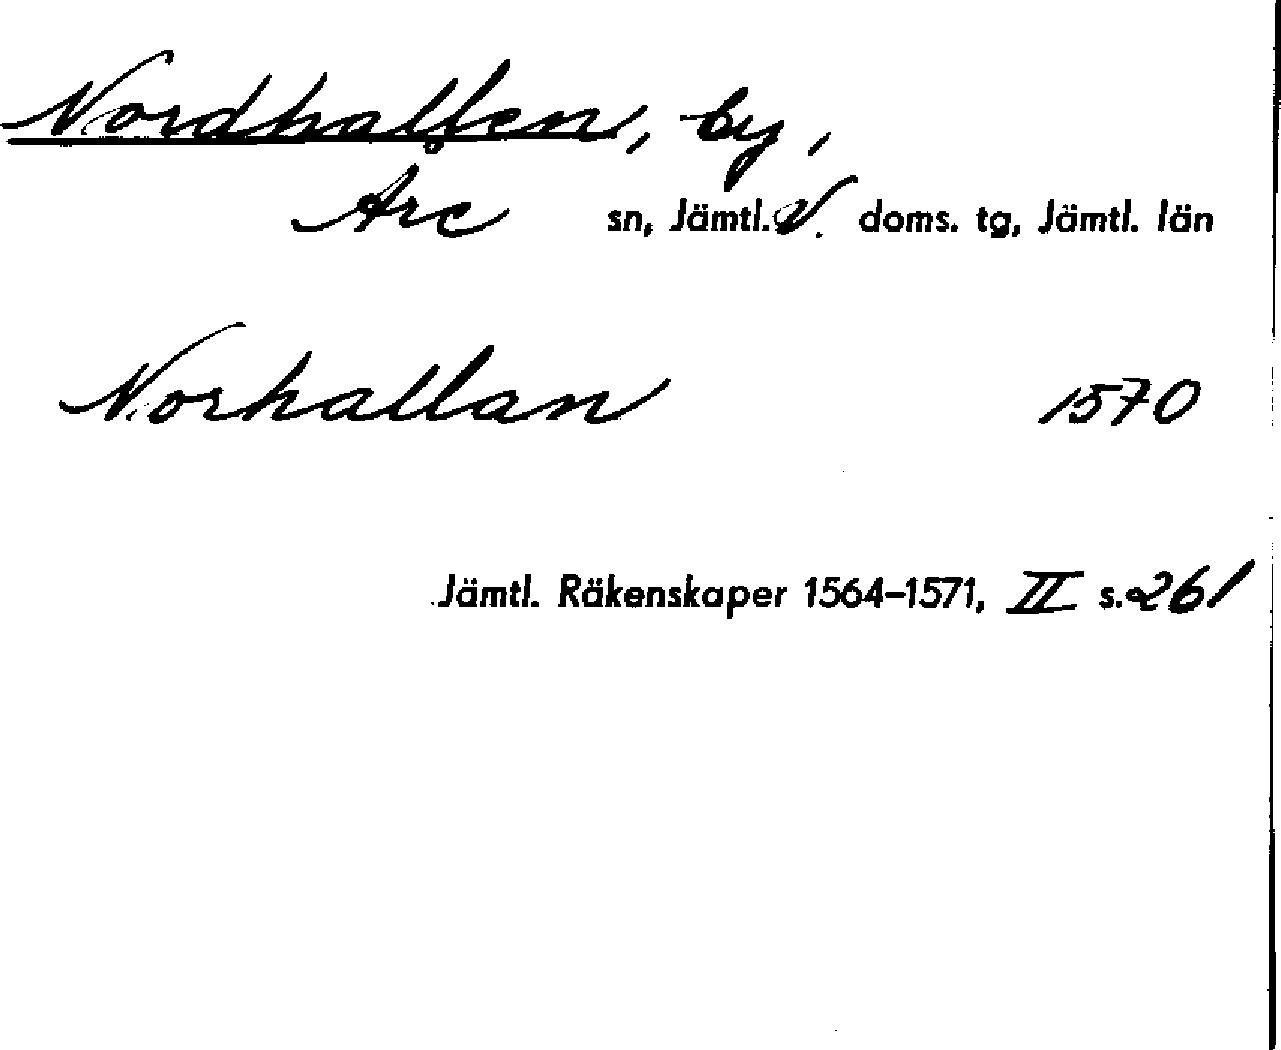 Nordhallen, by,
Åre sn, Jämtl. V. doms. tg, Jämtl. län
Norhallan 1570
Jämtl. Räkenskaper 1564–1571, II s. 261